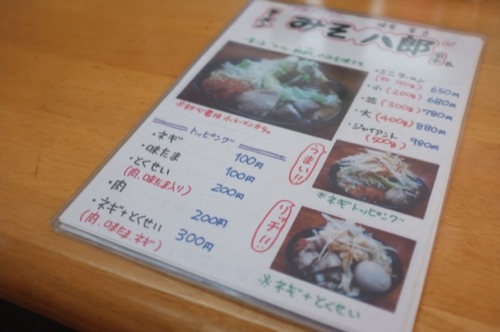 みそ八郎
・ミニラーメン 650円
(150g)
・小(200g) 680円
・並(300g) 780円
・大(400g) 880円
・ジャイアント 980円
(500g)
トッピング
・ネギ 100円
・味たま 100円
・とくせい 200円
(肉、味たま入り)
・肉 200円
・ネギ+とくせい 300円
(肉、味たま、ネギ)
うまい!!
※ネギトッピング
リッチ!!
※ネギ+とくせい